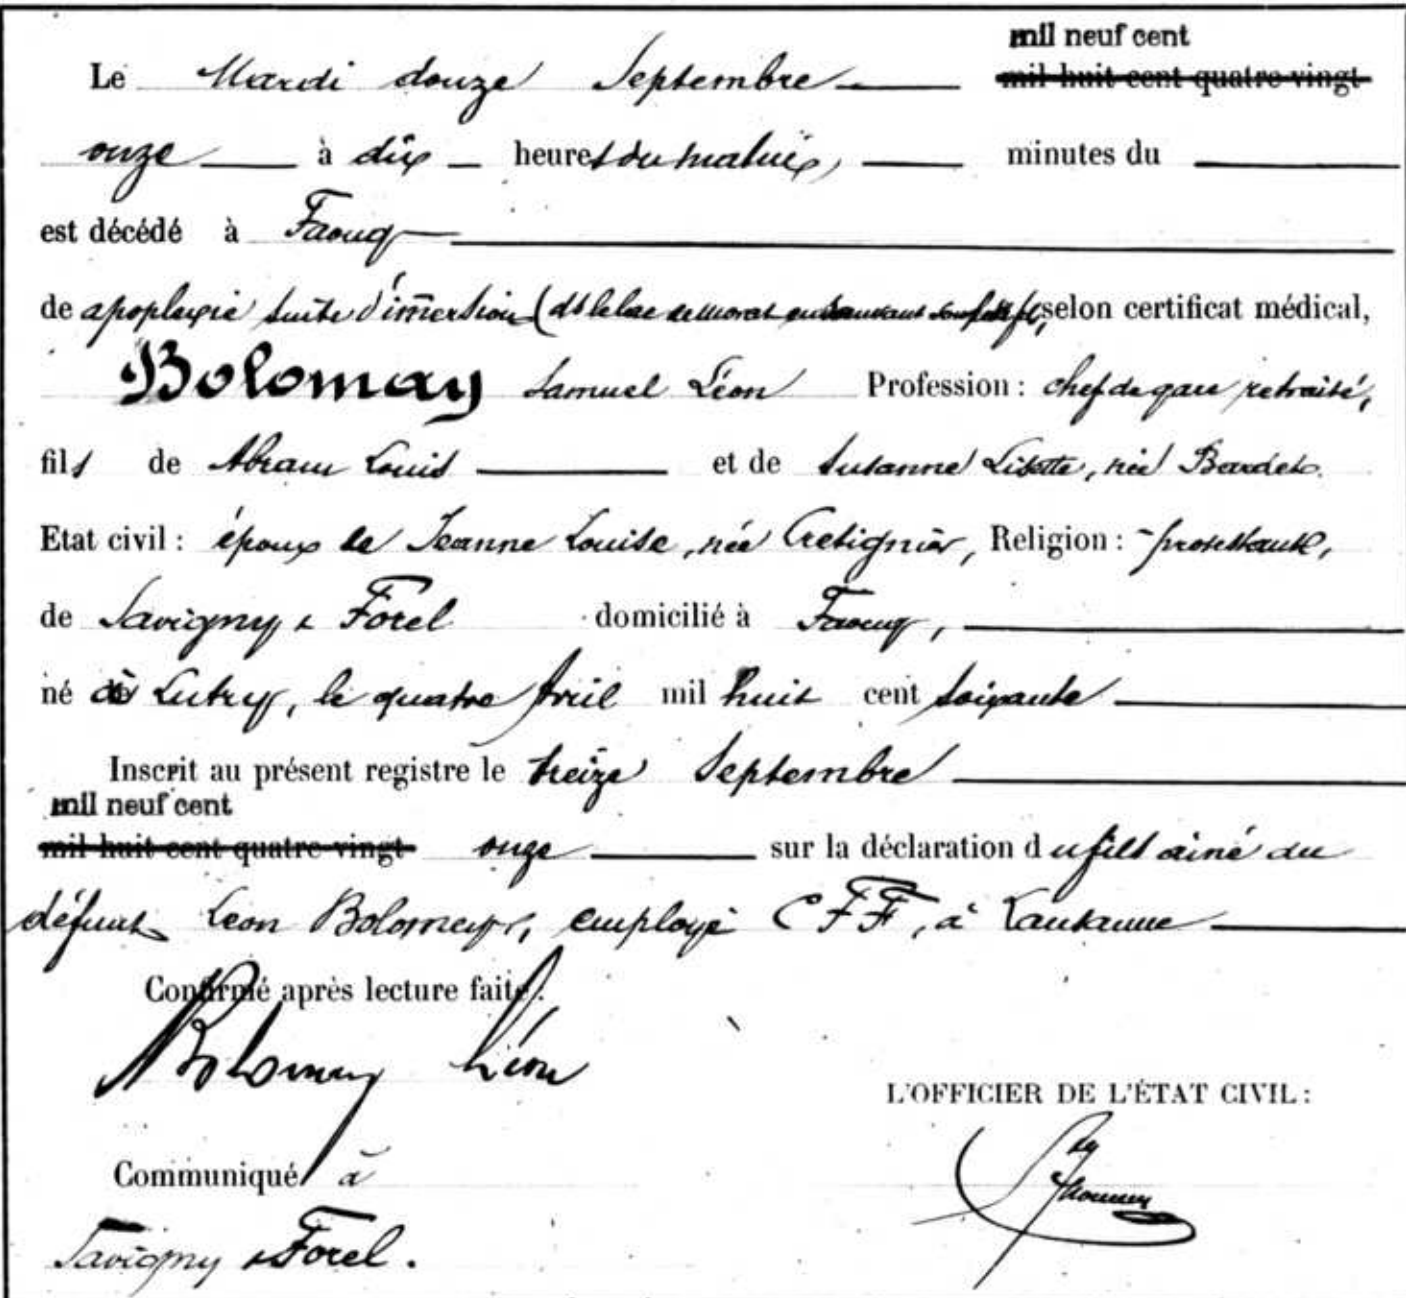 mil neuf cent
Le Mardi douze Septembre mil huit cent quatre-vingt
onze à dix heures du matin, minutes du
est décédé à Faoug
de apoplexie suite d'immersion (ds le lac de Morat en sauvant son petit fils), selon certificat médical,
Bolomay Samuel Léon Profession : chef de gare retraité,
fils de Abram Louis et de Susanne Lisette, née Bardet.
Etat civil : époux de Jeanne Louise, née Cretignier, Religion : protestante,
de Savigny & Forel domicilié à Faoug,
né à Lutry, le quatre Avril mil huit cent soixante
Inscrit au présent registre le treize Septembre
mil neuf cent
mil huit cent quatre-vingt onze sur la déclaration du fils ainé du
défunt Léon Bolomey, employé CFF, à Lausanne
Confirmé après lecture faite :
Bolomay Léon
L'OFFICIER DE L'ÉTAT CIVIL :
Communiqué à
Savigny & Forel.